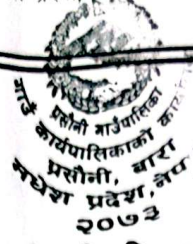 प्रसौनी गाउँपालिका
गाउँ कार्यपालिकाको का
प्रसौनी, बारा
मधेश प्रदेश, नेप
२०७३